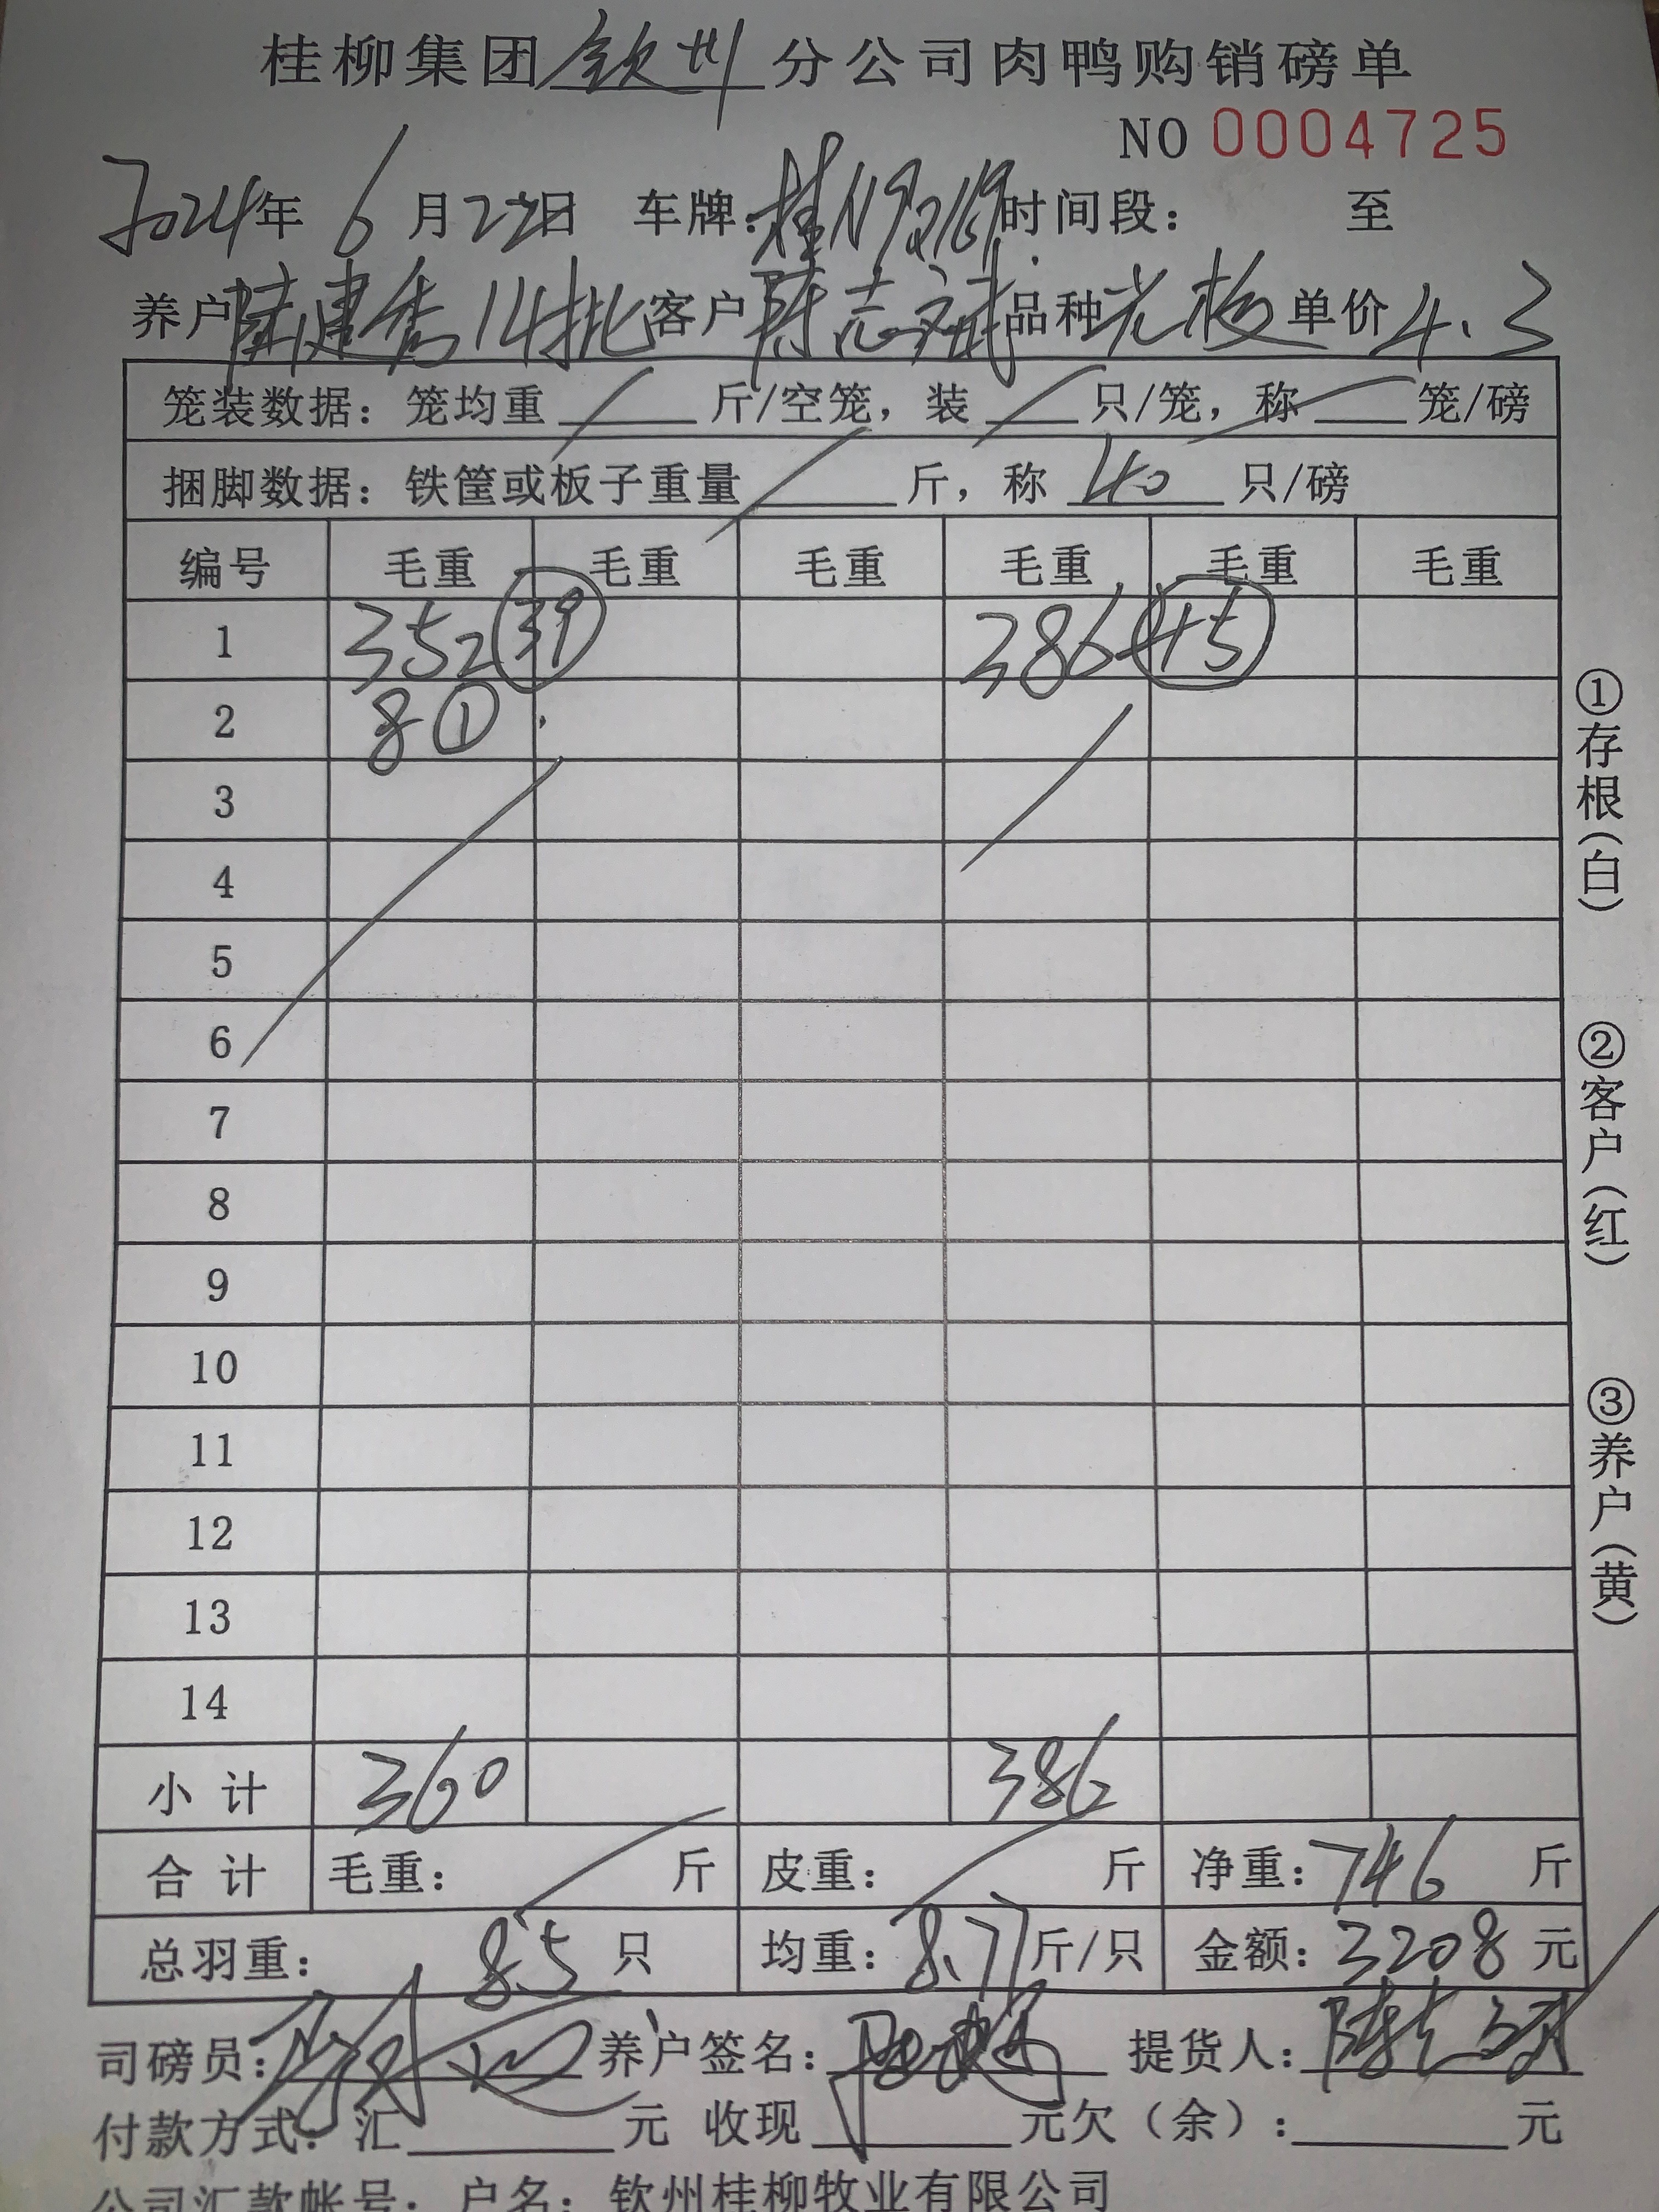 桂柳集团钦州分公司肉鸭购销磅单
NO 0004725
2024年 6月22日 车牌:桂N92169 时间段: 至
养户陆建秀14批 客户陈志斌 品种光板 单价4.3
笼装数据:笼均重 / 斤/空笼,装 / 只/笼,称 / 笼/磅
捆脚数据:铁筐或板子重量 / 斤,称 40 只/磅
编号 毛重 毛重 毛重 毛重 毛重 毛重
1 352 39 386 45
2 8 ①
3
4
5
6
7
8
9
10
11
12
13
14
小计 360 386
合计 毛重: / 斤 皮重: / 斤 净重:746 斤
总羽重: 85 只 均重:8.77斤/只 金额:3208元
司磅员: 养户签名: 提货人:陈志斌
付款方式:汇 元 收现 元欠(余): 元
公司汇款帐号:户名:钦州桂柳牧业有限公司
①存根(白)
②客户(红)
③养户(黄)